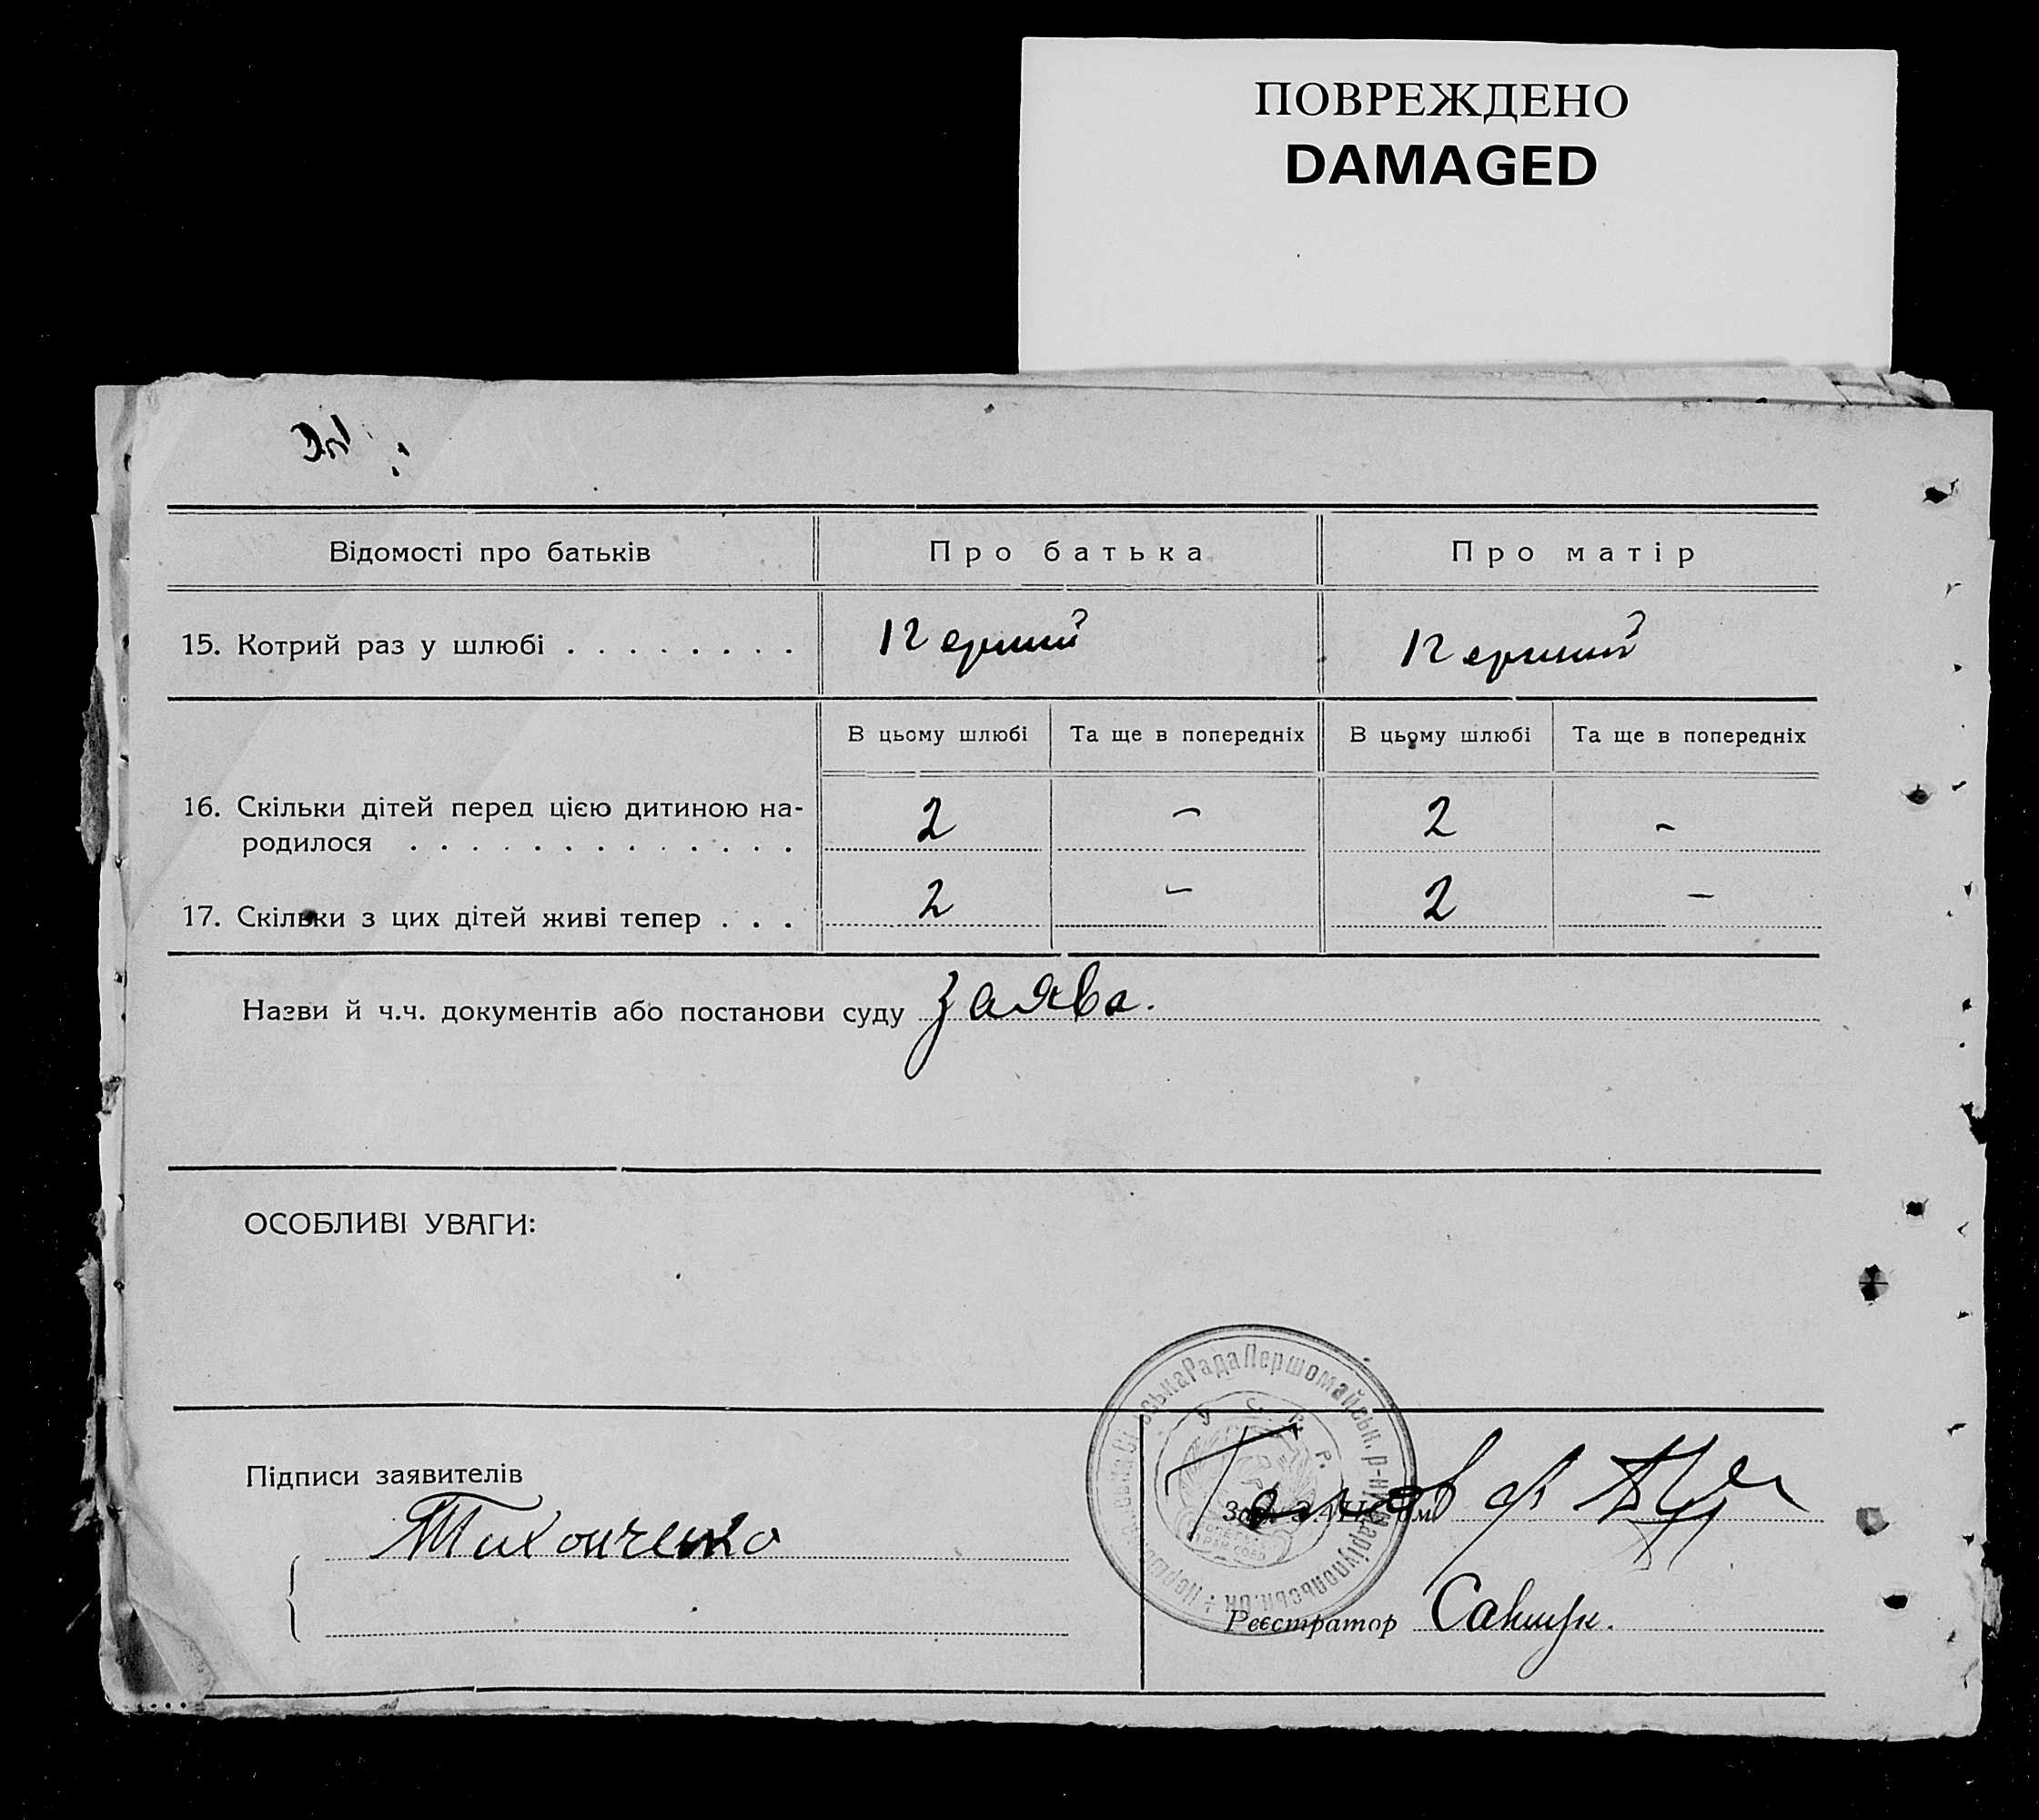 ПОВРЕЖДЕНО
DAMAGED
Відомості про батьків
Про батька
Про матір
15. Котрий раз у шлюбі . . . . . . . .
Перший
Перший
В цьому шлюбі
Та ще в попередніх
В цьому шлюбі
Та ще в попередніх
16. Скільки дітей перед цією дитиною на-
родилося . . . . . . . . . . . . .
2
-
2
-
17. Скільки з цих дітей живі тепер . . .
2
-
2
-
Назви й ч.ч. документів або постанови суду заява.
ОСОБЛИВІ УВАГИ:
Рада Першомайськ. р-ну Маріупольськ. ок
У. С. Р. Р.
Підписи заявителів
Тихонченко
Реєстратор